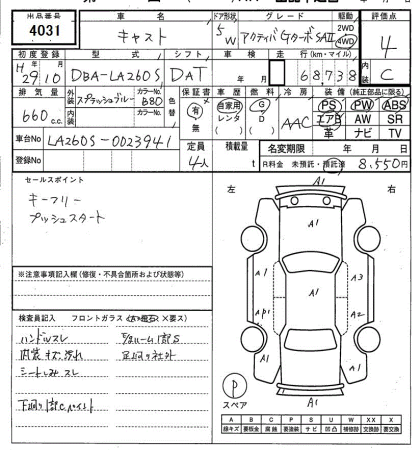 出品番号 車名 ドア形状 グレード 駆動 評価点
4031 キャスト 5W アクティバGターボSAⅡ 2WD 4WD 4
初度登録 型式 シフト 車検 走行(km・マイル) 内装
H29.10 DBA-LA260S DAT 年 月 68738 C
排気量 外装 スプラッシュブルー カラーNo. B80 色替 保証書 車歴 燃料 冷房 装備(純正部品に限る)
660c.c. 内装 カラーNo. 有 無 自家用 レンタ ( ) G D ( ) AAC PS PW ABS
エアB AW SR
革 ナビ TV
車台No LA260S-0023941 定員 4人 積載量 t 名変期限 年 月 日
登録No R料金 未預託・預託済 8,550円
セールスポイント
キーフリー
プッシュスタート
左 右
※注意事項記入欄(修復・不具合箇所および状態等)
検査員記入 フロントガラス(A・飛石・×要ス)
ハンドルスレ
内装キズ汚れ
シートしみ スレ
下廻り1部Cペイント
A1
A1
A1 A3
A1
AP1 A2
A1 A1
A1
P
スペア
A B C P S U W X XX
線キズ 要板金 腐蝕 要塗装 サビ 凹凸 補修跡 要交換 交換